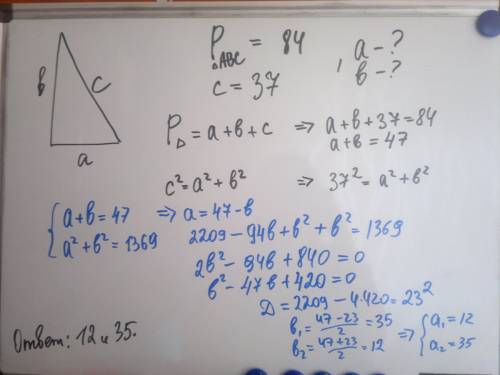 в
c
a
P△ABC = 84
c = 37
, a - ?
в - ?
P△ = a + в + c ⇒ a + в + 37 = 84
a + в = 47
c² = a² + в² ⇒ 37² = a² + в²
{ a + в = 47 ⇒ a = 47 - в
a² + в² = 1369
2209 - 94в + в² + в² = 1369
2в² - 94в + 840 = 0
в² - 47в + 420 = 0
D = 2209 - 4·420 = 23²
в₁ = (47 - 23)/2 = 35 ⇒ { a₁ = 12
в₂ = (47 + 23)/2 = 12 a₂ = 35
Ответ: 12 и 35.